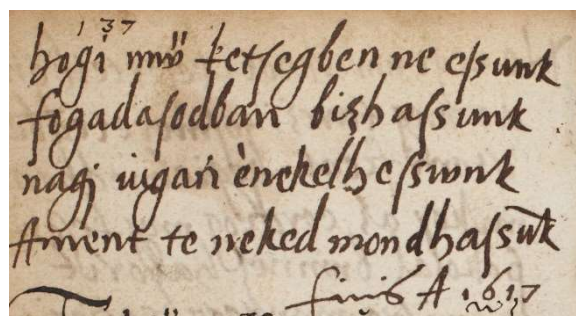 137
hogi mÿ ketſegben ne eſsunk
fogadaſodban bizhaſsunk
nagi uigan enekelheſswnk
Ament te neked mondhaſswk
finis A 1617